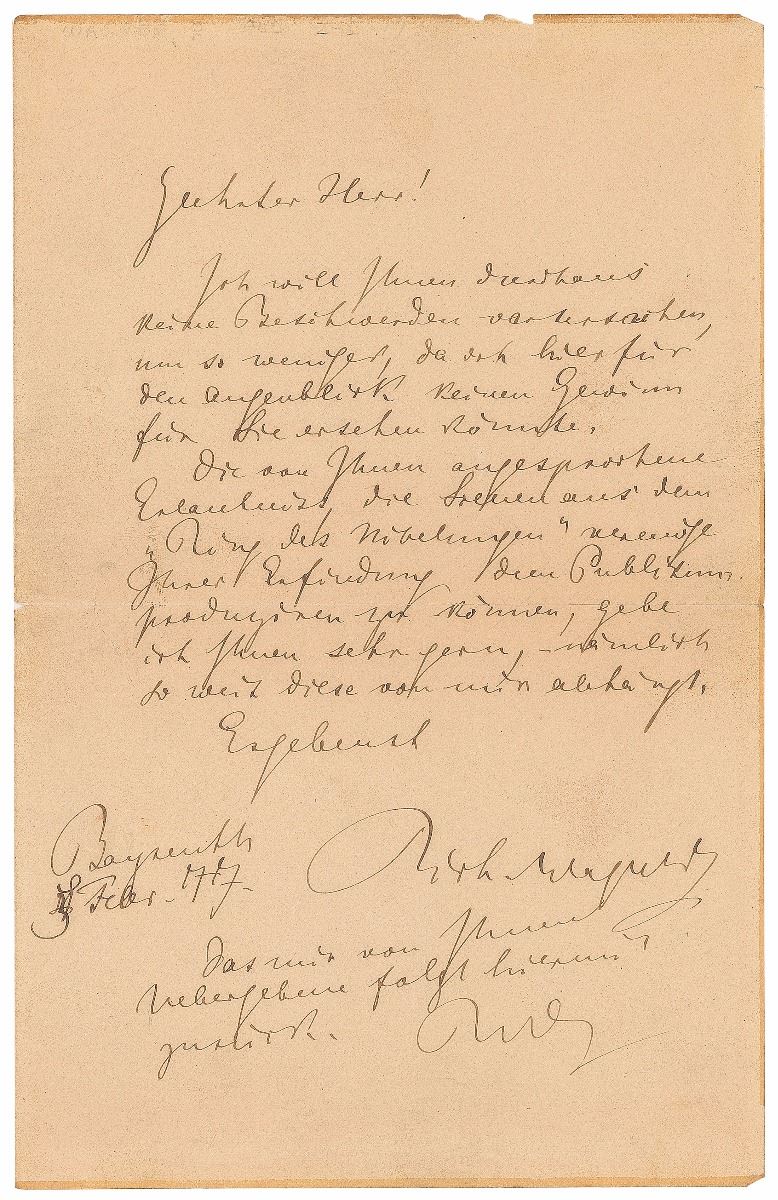 Geehrter Herr!
Ich will Ihnen durchaus
keine Beschwerden verursachen,
um so weniger, da ich hier für
den Augenblick keinen Gewinn
für Sie ersehen könnte.
Die von Ihnen angesprochene
Erlaubniss, die Scenen aus dem
„Ring des Nibelungen" vermöge
Ihrer Erfindung dem Publikum
produziren zu können, gebe
ich Ihnen sehr gern, – nämlich
so weit diese von mir abhängt.
Ergebenst
Bayreuth
Febr.
Rich. Wagner
Das mir von Ihnen
Uebergebene folgt hiermit
zurück.